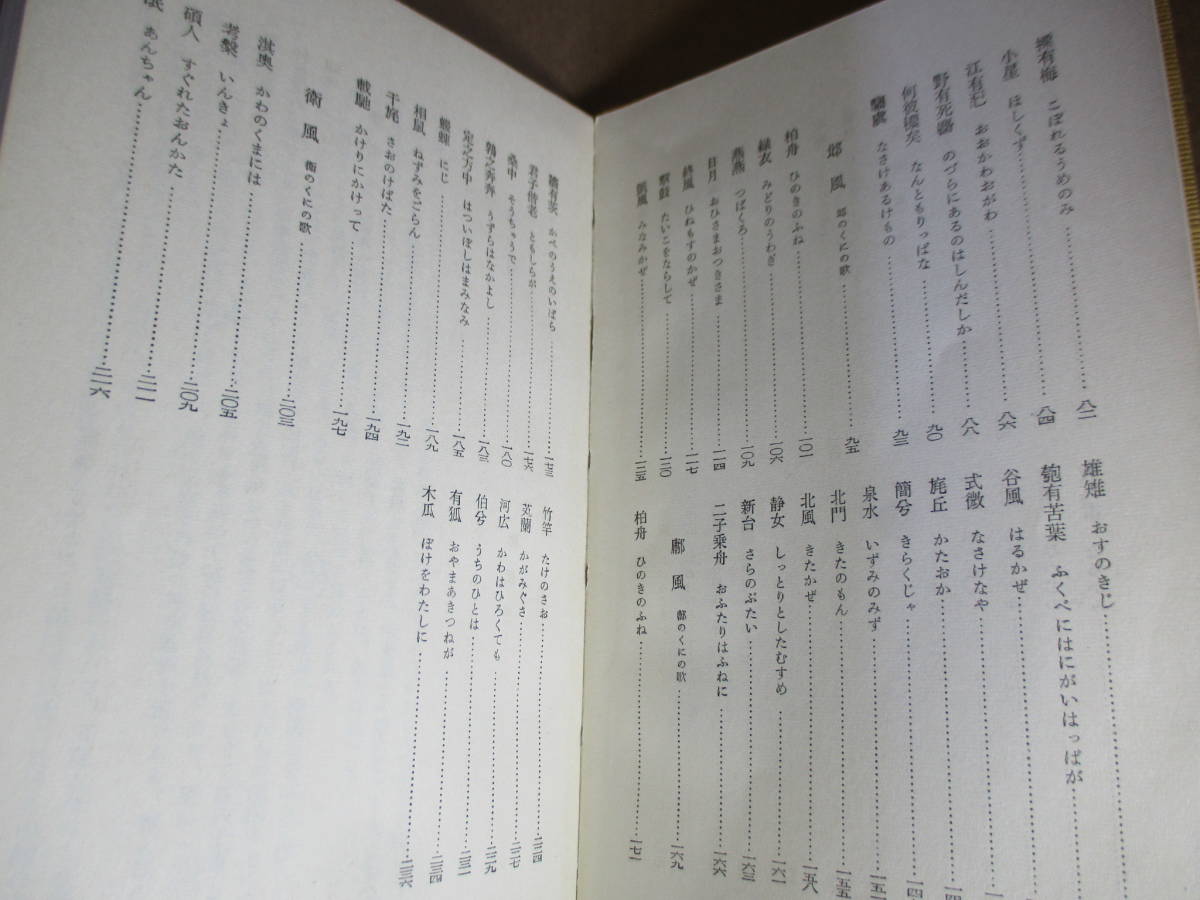 摽有梅 こぼれるうめのみ……八二
小星 ほしくず……八四
江有汜 おおかわおがわ……八六
野有死麕 のづらにあるのはしんだしか……八八
何彼襛矣 なんともりっぱな……九〇
騶虞 なさけあるけもの……九三
邶風 邶のくにの歌……九五
柏舟 ひのきのふね……一〇一
緑衣 みどりのうわぎ……一〇六
燕燕 つばくろ……一〇九
日月 おひさまおつきさま……一一四
終風 ひねもすのかぜ……一一七
撃鼓 たいこをならして……一二〇
凱風 みなみかぜ……一二五
雄雉 おすのきじ……
匏有苦葉 ふくべにはにがいはっぱが……
谷風 はるかぜ……
式微 なさけなや……
旄丘 かたおか……
簡兮 きらくじゃ……
泉水 いずみのみず……
北門 きたのもん……一五五
北風 きたかぜ……一五八
静女 しっとりとしたむすめ……一六一
新台 さらのぶたい……一六三
二子乗舟 おふたりはふねに……一六六
鄘風 鄘のくにの歌……一六九
柏舟 ひのきのふね……一七一
牆有茨 かべのうえのいばら……一七三
君子偕老 ともしらが……一七六
桑中 そうちゅうで……一八〇
鶉之奔奔 うずらはなかよし……一八三
定之方中 はついぼしはまみなみ……一八五
蝃蝀 にじ……一八九
相鼠 ねずみをごらん……一九二
干旄 さおのけばた……一九四
載馳 かけりにかけって……一九七
衛風 衛のくにの歌……二〇三
淇奥 かわのくまには……二〇五
考槃 いんきょ……二〇九
碩人 すぐれたおんかた……二一一
氓 あんちゃん……二一六
竹竿 たけのさお……二二四
芄蘭 かがみぐさ……二二七
河広 かわはひろくても……二二九
伯兮 うちのひとは……二三一
有狐 おやまあきつねが……二三四
木瓜 ぼけをわたしに……二三六